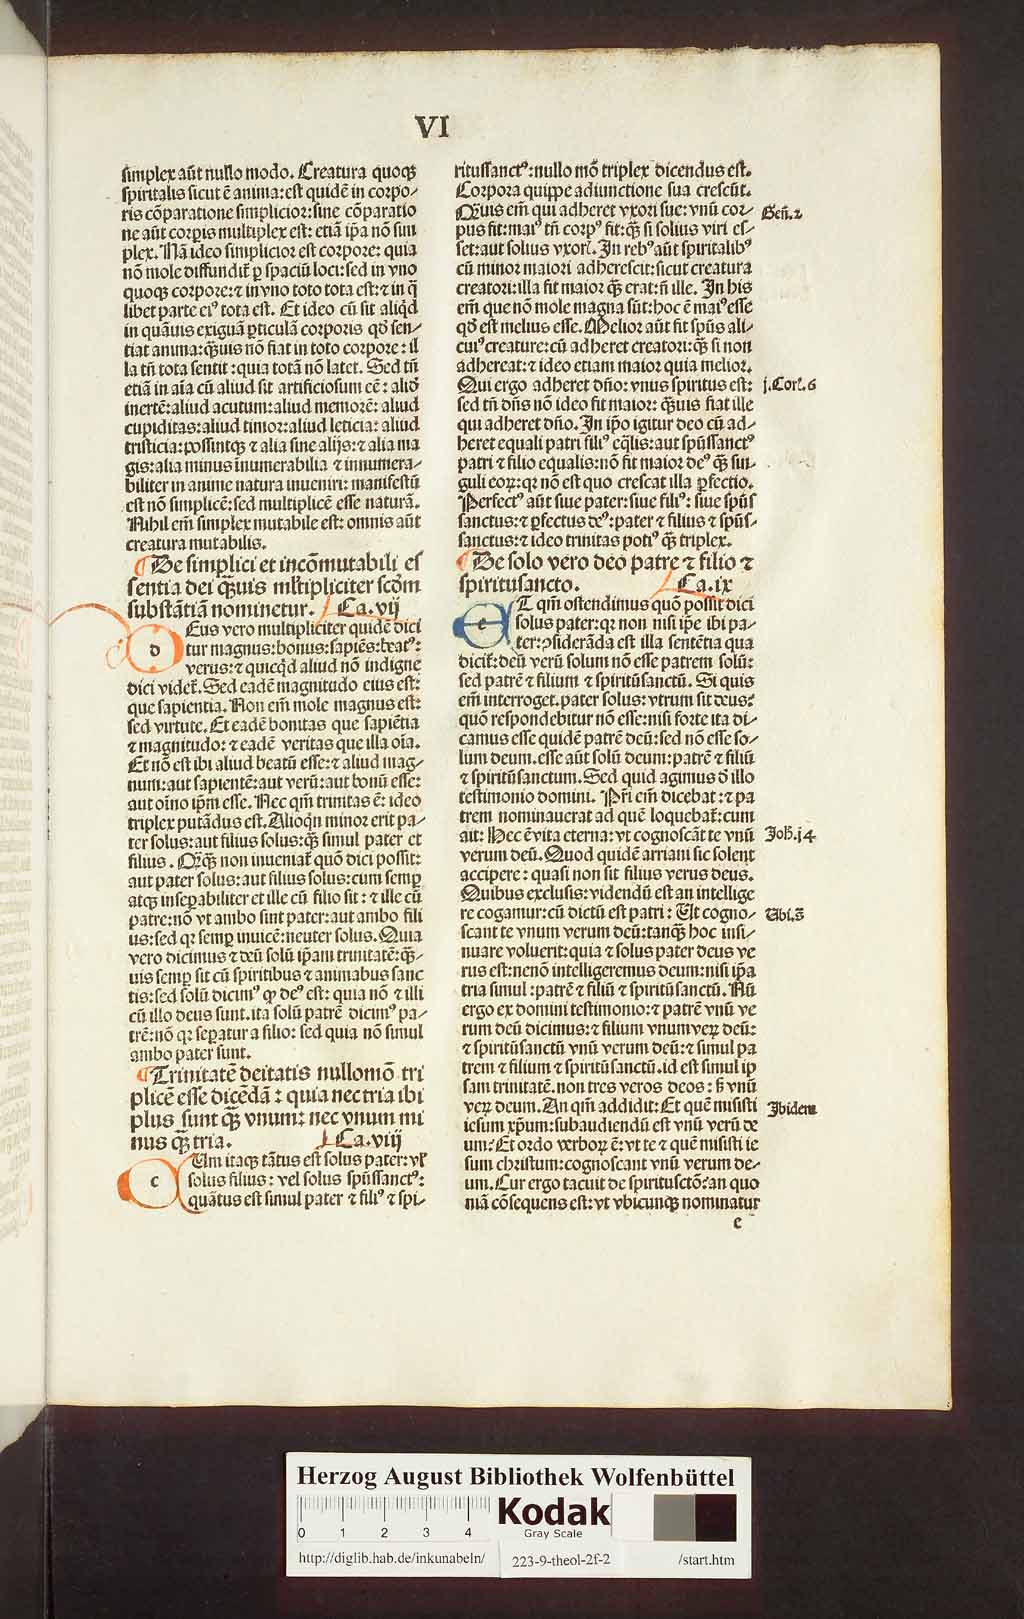 VI
simplex aūt nullo modo. Creatura quoqꝫ
spiritalis sicut ē anima: est quidē in corpo-
ris cōparatione simplicior: sine cōparatio
ne aūt corpis multiplex est: etiā ip̄a nō sim
plex. Nā ideo simplicior est corpore: quia
nō mole diffundit̄ ꝑ spaciū loci: sed in vno
quoqꝫ corpore: ⁊ in vno toto tota est: ⁊ in q̄
libet parte eiꝰ tota est. Et ideo cū sit aliqd̓
in quāuis exiguā ꝑticulā corporis qd̓ sen-
tiat anima: qꝫuis nō fiat in toto corpore: il
la tn̄ tota sentit: quia totā nō latet. Sed tn̄
etiā in aīa cū aliud sit artificiosum eē: aliud
inertē: aliud acutum: aliud memorē: aliud
cupiditas: aliud timor: aliud leticia: aliud
tristicia: possintqꝫ ⁊ alia sine alijs: ⁊ alia ma
gis: alia minus īnumerabilia ⁊ innumera-
biliter in anime natura inueniri: manifestū
est nō simplicē: sed multiplicē esse naturā.
Nihil em̄ simplex mutabile est: omnis aūt
creatura mutabilis.
¶ De simplici et incōmutabili es
sentia dei qꝫuis ml̓tipliciter scōm
substātiā nominetur. Ca. vij
dEus vero multipliciter quidē dici
tur magnus: bonus: sapiēs: beatꝰ:
verus: ⁊ quicqd̓ aliud nō indigne
dici videt̄. Sed eadē magnitudo eius est:
que sapientia. Non em̄ mole magnus est:
sed virtute. Et eadē bonitas que sapiētia
⁊ magnitudo: ⁊ eadē veritas que illa oīa.
Et nō est ibi aliud beatū esse: ⁊ aliud mag-
num: aut sapientē: aut verū: aut bonū esse:
aut oīno ip̄m esse. Nec qm̄ trinitas ē: ideo
triplex putādus est. Alioqn̄ minor erit pa-
ter solus: aut filius solus: qꝫ simul pater et
filius. Qꝫqꝫ non inueniat̄ quō dici possit:
aut pater solus: aut filius solus: cum semꝑ
atqꝫ inseꝑabiliter et ille cū filio sit: ⁊ ille cū
patre: nō vt ambo sint pater: aut ambo fili
us: sed qꝛ semꝑ inuicē: neuter solus. Quia
vero dicimus ⁊ deū solū ip̄am trinitatē: qꝫ-
uis semꝑ sit cū spiritibus ⁊ animabus sanc
tis: sed solū dicimꝰ ꝙ deꝰ est: quia nō ⁊ illi
cū illo deus sunt. ita solū patrē dicimꝰ pa-
trē: nō qꝛ seꝑatur a filio: sed quia nō simul
ambo pater sunt.
¶ Trinitatē deitatis nullomō tri
plicē esse dicēdā: quia nec tria ibi
plus sunt qꝫ vnum: nec vnum mi
nus qꝫ tria. Ca. viij
cUm itaqꝫ tātus est solus pater: vl̓
solus filius: vel solus spūssanctꝰ:
quātus est simul pater ⁊ filiꝰ ⁊ spi-
ritussanctꝰ: nullo mō triplex dicendus est.
Corpora quippe adiunctione sua crescūt.
Qꝫuis em̄ qui adheret vxori sue: vnū cor-
pus fit: maiꝰ tn̄ corpꝰ fit: qꝫ si solius viri es-
set: aut solius vxoris. In rebꝰ aūt spiritalibꝰ
cū minor maiori adherescit: sicut creatura
creatori: illa fit maior qꝫ erat: n̄ ille. In his
em̄ que nō mole magna sūt: hoc ē maiꝰ esse
qd̓ est melius esse. Melior aūt fit spūs ali-
cuiꝰ creature: cū adheret creatori: qꝫ si non
adhereat: ⁊ ideo etiam maior quia melior.
Qui ergo adheret dño: vnus spiritus est:
sed tn̄ dn̄s nō ideo fit maior: qꝫuis fiat ille
qui adheret dño. In ip̄o igitur deo cū ad-
heret equali patri filiꝰ eq̄lis: aut spūssanctꝰ
patri ⁊ filio equalis: nō fit maior deꝰ qꝫ sin-
guli eoꝝ: qꝛ nō est quo crescat illa ꝑfectio.
Perfectꝰ aūt siue pater: siue filiꝰ: siue spūs
sanctus: ⁊ ꝑfectus deꝰ: pater ⁊ filius ⁊ spūs-
sanctus: ⁊ ideo trinitas potiꝰ qꝫ triplex.
¶ De solo vero deo patre ⁊ filio ⁊
spiritusancto. Ca. ix
eT qm̄ ostendimus quō possit dici
solus pater: qꝛ non nisi ip̄e ibi pa-
ter: ꝯsiderāda est illa sentētia qua
dicit̄: deū verū solum nō esse patrem solū:
sed patrē ⁊ filium ⁊ spiritūsanctū. Si quis
em̄ interroget. pater solus: vtrum sit deus:
quō respondebitur nō esse: nisi forte ita di-
camus esse quidē patrē deū: sed nō esse so-
lum deum. esse aūt solū deum: patrē ⁊ filiū
⁊ spiritūsanctum. Sed quid agimus d̓ illo
testimonio domini. Pr̄i em̄ dicebat: ⁊ pa
trem nominauerat ad quē loquebat̄: cum
ait: Hec ē vita eterna: vt cognoscāt te vnū
verum deū. Quod quidē arriani sic solent
accipere: quasi non sit filius verus deus.
Quibus exclusis: videndū est an intellige
re cogamur: cū dictū est patri: Ut cogno-
scant te vnum verum deū: tanqꝫ hoc insi-
nuare voluerit: quia ⁊ solus pater deus ve
rus est: ne nō intelligeremus deum: nisi ip̄a
tria simul: patrē ⁊ filiū ⁊ spiritūsanctū. Nū
ergo ex domini testimonio: ⁊ patrē vnū ve
rum deū dicimus: ⁊ filium vnum veꝝ deū:
⁊ spiritūsanctū vnū verum deū: ⁊ simul pa
trem ⁊ filium ⁊ spiritūsanctū. id est simul ip
sam trinitatē. non tres veros deos: s̄ vnū
veꝝ deum. An qm̄ addidit: Et quē misisti
iesum xp̄um: subaudiendū est vnū verū de
um: Et ordo verboꝝ ē: vt te ⁊ quē misisti ie
sum christum: cognoscant vnū verum de-
um. Cur ergo tacuit de spiritusctō: an quo
niā cōsequens est: vt vbicunqꝫ nominatur
Geñ. 2
j. Cor. 6
Joh̄. j4
Ubi.s̄
Ibidem
e
Herzog August Bibliothek Wolfenbüttel
0 1 2 3 4
Kodak
Gray Scale
http://diglib.hab.de/inkunabeln/
223-9-theol-2f-2
/start.htm